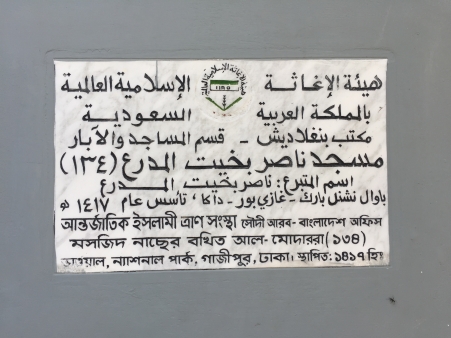 هيئة الإغاثة الإسلامية العالمية
بالمملكة العربية السعودية
مكتب بنغلاديش - قسم المساجد والآبار
مسجد ناصر بخيت المدرع (١٣٤)
اسم المتبرع: ناصر بخيت المدرع
باوال نشنل بارك - غازي بور - داكا، تأسس عام ١٤١٧ هـ
আন্তর্জাতিক ইসলামী ত্রাণ সংস্থা সৌদী আরব- বাংলাদেশ অফিস
মসজিদ নাছের বখিত আল- মোদাররা (১৩৪)
ন্যাশনাল পার্ক, গাজীপুর, ঢাকা। স্থাপিত: ১৪১৭ হিঃ